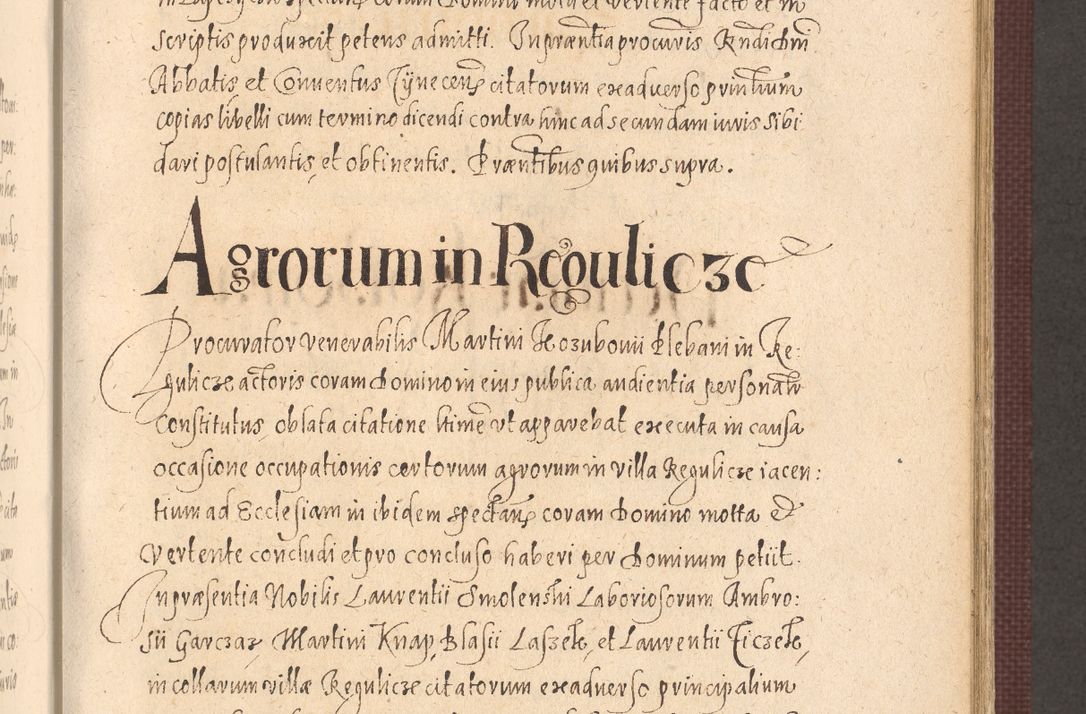 scriptis produxit petens admitti. In præntia procuris Rndi Dni
Abbatis, et Conventus Tÿnecen citatorum ex adverso printium
copias libelli cum termino dicendi contra hinc ad secundam iuris sibi
dari postulantis, et obtinentis. Præntibus quibus supra.
Agrorum in Regulicze
Procurator venerabilis Martini Kozubonii Plebani in Re:
gulicze actoris coram Domino in eius publica audientia personatr
constitutus, oblata citatione ltime ut apparebat executa in causa
occasione occupationis certorum agrorum in villa Regulicze iacen:
tium ad Ecclesiam in ibidem spectan coram Domino mota et
vertente concludi et pro concluso haberi per Dominum petiit.
In præsentia Nobilis Laurentii Smolenshi Laboriosorum Ambro:
sii Garczaz, Martini Knap, Blasii Laszek, et Laurentii Ficzek,
incollarum villæ Regulicze citatorum ex adverso principalium